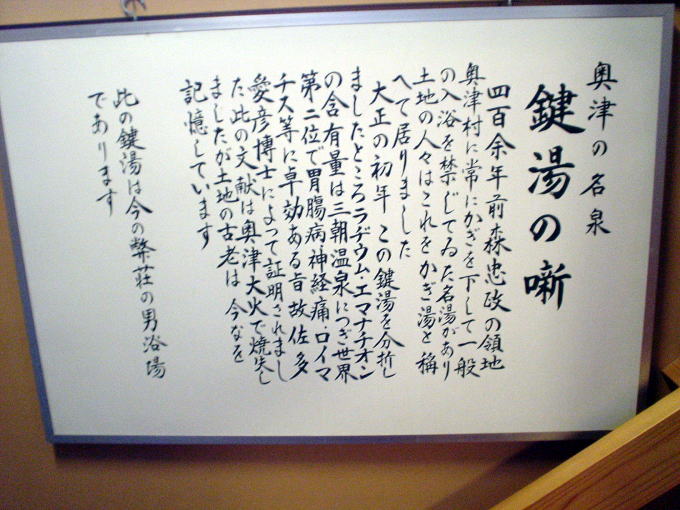 奥津の名泉
鍵湯の噺
四百余年前森忠政の領地
奥津村に常にかぎを下して一般
の入浴を禁じてゐた名湯があり
土地の人々はこれをかぎ湯を稱
へて居りました
大正の初年 この鍵湯を分折し
ましたところラヂウム・エマナチオン
の含有量は三朝温泉につぎ世界
第二位で胃腸病・神経痛・ロイマ
チス等に卓効ある旨 故佐多
愛彦博士によって証明されまし
た 此の文献は奥津大火で焼失し
ましたが土地の古老は 今なを
記憶しています
此の鍵湯は今の弊荘の男浴場
であります